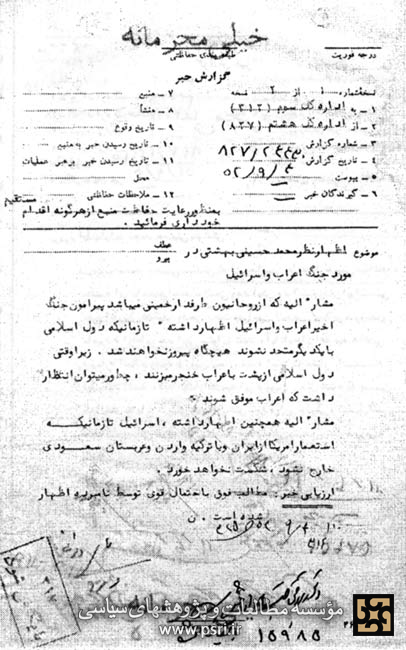 خیلی محرمانه
درجه فوریت
طبقه‌بندی حفاظتی
گزارش خبر
نسخه‌شماره ۱ از ۲ نسخه
۱ - به اداره کل سوم (۳۱۲)
۲ - از اداره کل هشتم (۸۲۷)
۳ - شماره گزارش
۴ - تاریخ گزارش ۵۲/۹/۴
۵ - پیوست
۶ - گیرندگان خبر
۷ - منبع
۸ - منشأ
۹ - تاریخ وقوع
۱۰ - تاریخ رسیدن خبر به منبع
۱۱ - تاریخ رسیدن خبر برهبر عملیات
محل
۱۲ - ملاحظات حفاظتی مستقیم
بمنظور رعایت حفاظت منبع از هرگونه اقدام
خودداری فرمائید.
موضوع اظهارنظر محمد حسینی بهشتی در
عطف
پیرو
مورد جنگ اعراب و اسرائیل
مشارالیه که از روحانیون طرفدار خمینی میباشد پیرامون جنگ
اخیر اعراب و اسرائیل اظهار داشته " تا زمانیکه دول اسلامی
با یکدیگر متحد نشوند هیچگاه پیروز نخواهند شد. زیرا وقتی
دول اسلامی از پشت باعراب خنجر میزنند، چطور میتوان انتظار
داشت که اعراب موفق شوند "
مشارالیه همچنین اظهار داشته، اسرائیل تا زمانیکه
استعمار امریکا از ایران و یا ترکیه و اردن و عربستان سعودی
خارج نشود، شکست نخواهد خورد.
ارزیابی خبر: مطالب فوق باحتمال قوی توسط نامبرده اظهار
شده است. ن
مؤسسه مطالعات و پژوهشهای سیاسی
www.psri.ir
۱۵۹۸۵